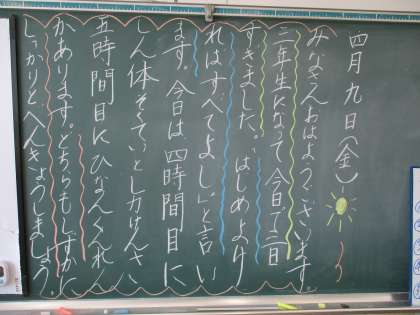 四月九日（金）
みなさんおはようございます。
二年生になって今日で三日
すぎました。「はじめよけ
ればすべてよし」と言い
ます。今日は、四時間目に
しん体そくていとしカけんさ、
五時間目にひなんくんれん
があります。どちらもしずかに
しっかりと、べんきょうしましょう。